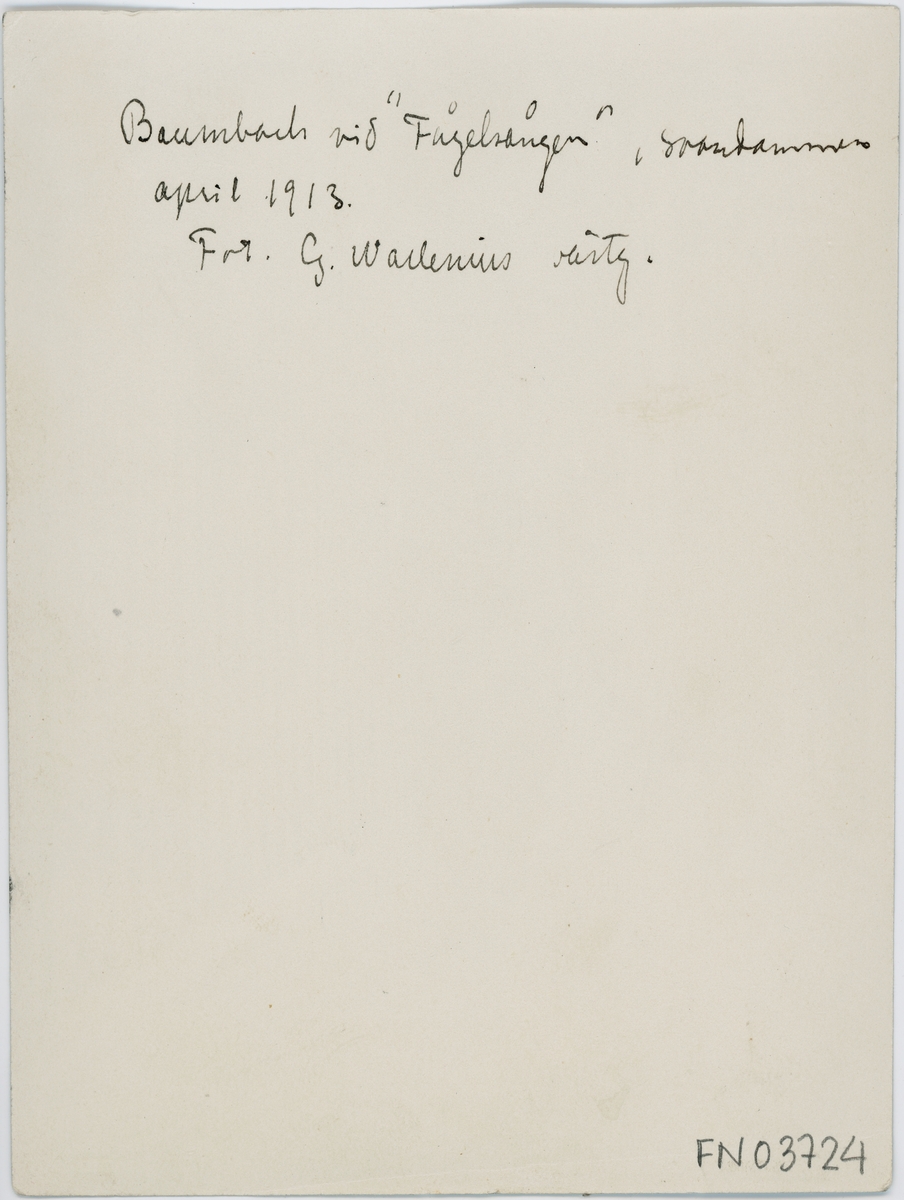 Baumbach vid "Fågelsången", Svandammen
april 1913.
Fot. G. Wallenius
FN03724